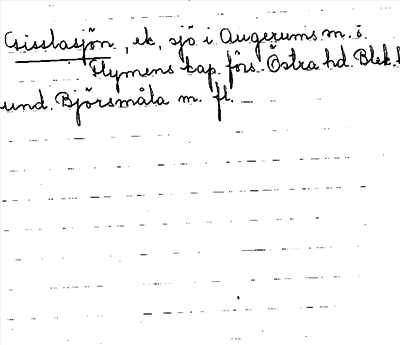 Gisslasjön, ek, sjö i Augerums sn. i
Flymens kap. förs. Östra hd. Blek. l
und. Björsmåla m. fl.